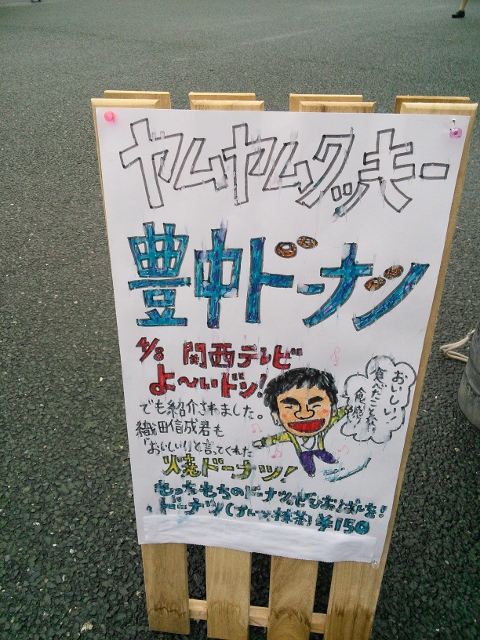 ヤムヤムクッキー
豊中ドーナツ
4/8 関西テレビ
よ〜いドン!
でも紹介されました。
織田信成君も
「おいしい!」と言ってくれた
焼ドーナツ!
おいしい!
食べたことない
食感!
もっちもちのドーナツ
ドーナツ 抹茶 ¥150